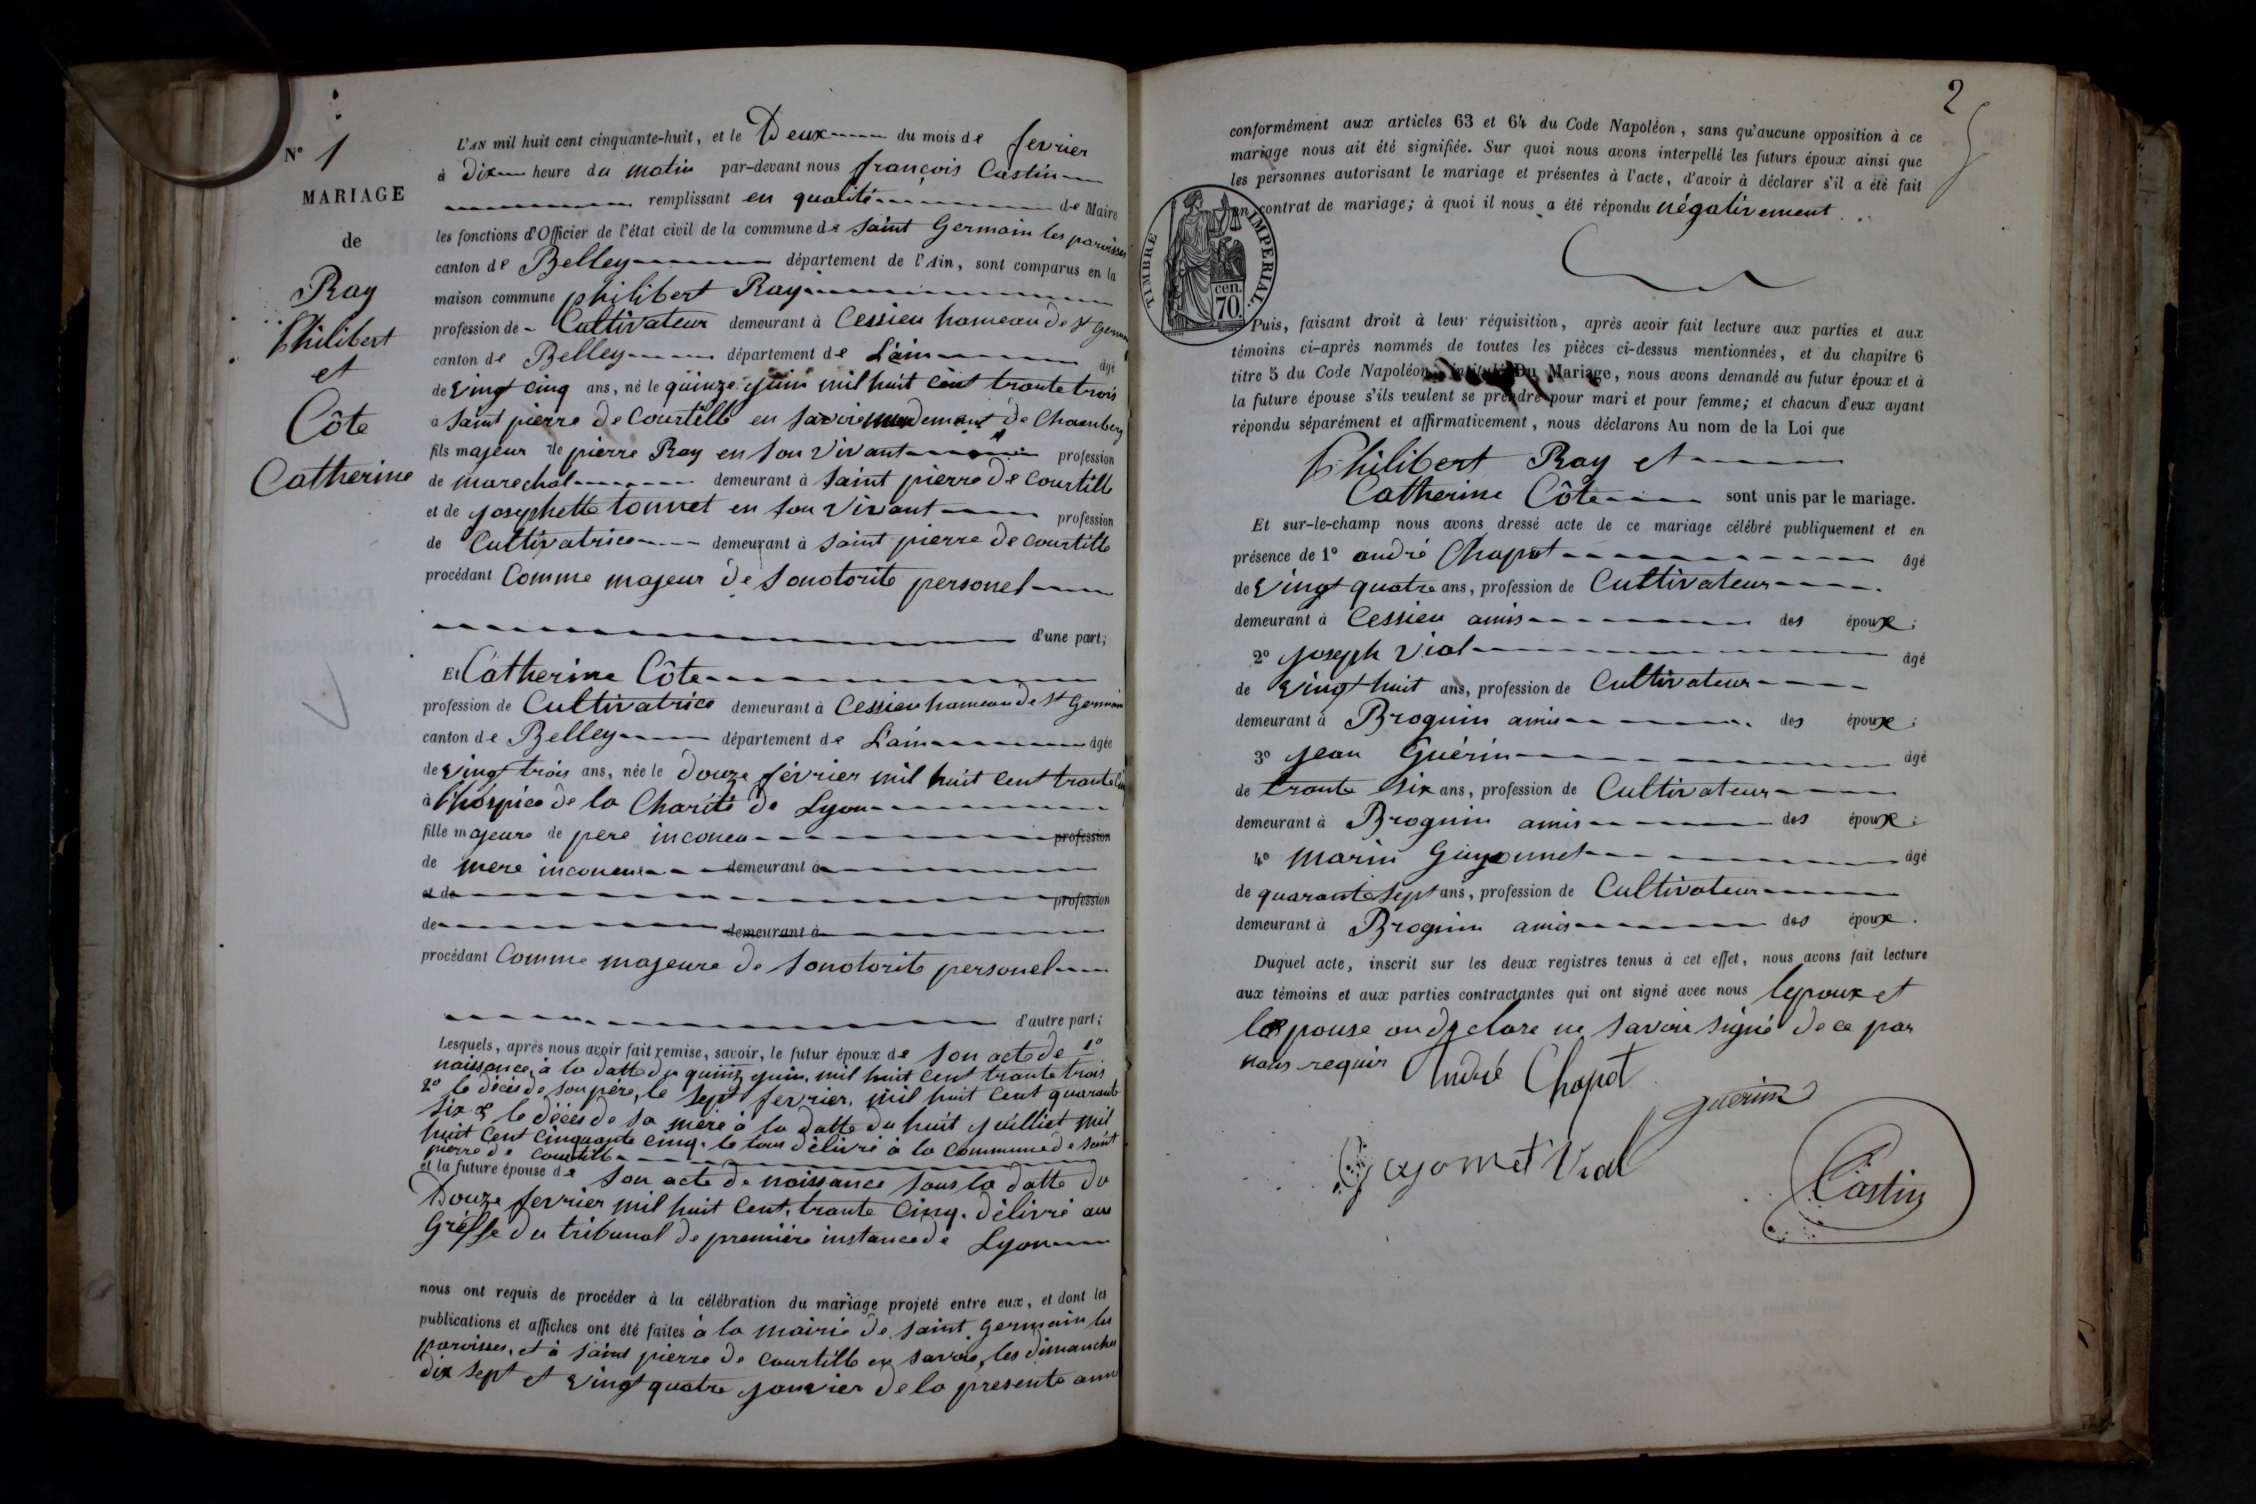 N° 1
MARIAGE
de
Ray
Philibert
et
Côte
Catherine
L'AN mil huit cent cinquante-huit, et le Deux du mois de fevrier
à dix heure du matin par-devant nous françois Castin
remplissant en qualité de Maire
les fonctions d'Officier de l'état civil de la commune de saint Germain les paroisses
canton de Belley département de l'Ain, sont comparus en la
maison commune philibert Ray
profession de Cultivateur demeurant à Cessieu hameau de St Germain
canton de Belley département de L'ain âgé
de vingt cinq ans, né le quinze juin mil huit cent trante trois
à saint pierre de Courtille en savoie mendement de Chambery
fils majeur de pierre Ray en son vivant profession
de marechal demeurant à saint pierre de courtille
et de josephette tonnet en son vivant profession
de Cultivatrice demeurant à saint pierre de courtille
procédant Comme majeur de sonotorite personel
d'une part;
Et Catherine Côte
profession de Cultivatrice demeurant à Cessieu hameau de St Germain
canton de Belley département de L'ain âgée
de vingt trois ans, née le douze février mil huit cent trante cinq
à l'hospice de la Charité de Lyon
fille majeure de pere inconeu profession
de mere inconeue demeurant à
et de profession
de demeurant à
procédant Comme majeure de sonotorite personel
d'autre part;
Lesquels, après nous avoir fait remise, savoir, le futur époux de 1° son acte de
naissance, à la datte du quinze juin, mil huit cent trante trois
2° le décès de son père, le sept fevrier, mil huit cent quarante
six & le décès de sa mère à la datte du huit juilliet mil
huit cent cinquante cinq. le tous délivré à la commune de saint
pierre de courtille
et la future épouse de son acte de naissance sous la datte du
Douze fevrier mil huit cent trante cinq. délivré au
Gréffe du tribunal de première instance de Lyon
nous ont requis de procéder à la célébration du mariage projeté entre eux, et dont les
publications et affiches ont été faites à la mairie de saint Germain les
paroisses, et à saint pierre de courtille en savoie, les dimanches
dix sept et vingt quatre janvier de la presente anné
2
conformément aux articles 63 et 64 du Code Napoléon, sans qu'aucune opposition à ce
mariage nous ait été signifiée. Sur quoi nous avons interpellé les futurs époux ainsi que
les personnes autorisant le mariage et présentes à l'acte, d'avoir à déclarer s'il a été fait
un contrat de mariage; à quoi il nous a été répondu négativement.
TIMBRE IMPERIAL.
cen.
70.
Puis, faisant droit à leur réquisition, après avoir fait lecture aux parties et aux
témoins ci-après nommés de toutes les pièces ci-dessus mentionnées, et du chapitre 6
titre 5 du Code Napoléon, intitulé Du Mariage, nous avons demandé au futur époux et à
la future épouse s'ils veulent se prendre pour mari et pour femme; et chacun d'eux ayant
répondu séparément et affirmativement, nous déclarons Au nom de la Loi que
Philibert Ray et
Catherine Côte sont unis par le mariage.
Et sur-le-champ nous avons dressé acte de ce mariage célébré publiquement et en
présence de 1° andré Chapot âgé
de vingt quatre ans, profession de Cultivateur
demeurant à Cessieu amis des époux;
2° joseph Vial âgé
de vingt huit ans, profession de Cultivateur
demeurant à Brognin amis des époux;
3° jean Guérin âgé
de trante six ans, profession de Cultivateur
demeurant à Brognin amis des époux;
4° marin Guyonnet âgé
de quarante sept ans, profession de Cultivateur
demeurant à Brognin amis des époux.
Duquel acte, inscrit sur les deux registres tenus à cet effet, nous avons fait lecture
aux témoins et aux parties contractantes qui ont signé avec nous lepoux et
lepouse on déclare ne savoir signé de ce par
nous requir
André Chapot
guerin
Gayonnet Vial
Castin